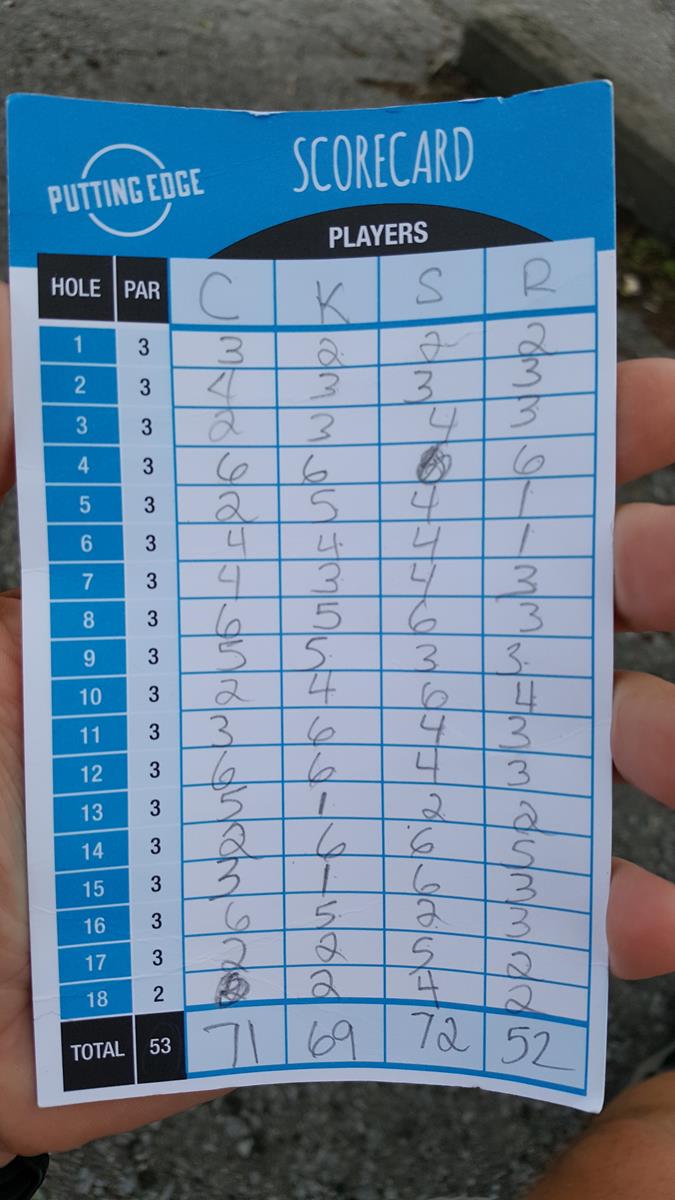 PUTTING EDGE
SCORECARD
PLAYERS
HOLE PAR C K S R
1 3 3 2 2 2
2 3 4 3 3 3
3 3 2 3 4 3
4 3 6 6 6
5 3 2 5 4 1
6 3 4 4 4 1
7 3 4 3 4 3
8 3 6 5 6 3
9 3 5 5 3 3
10 3 2 4 6 4
11 3 3 6 4 3
12 3 6 6 4 3
13 3 5 1 2 2
14 3 2 6 6 5
15 3 3 1 6 3
16 3 6 5 2 3
17 3 2 2 5 2
18 2 2 4 2
TOTAL 53 71 69 72 52